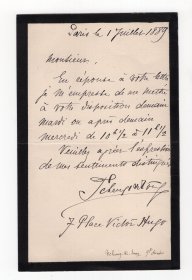 Paris le 1 Juillet 1889
Monsieur,
En réponse à votre lettre
je m'empresse de me mettre
à votre disposition demain
mardi ou après demain
mercredi de 10 h 1/2 à 11 h 1/2
Veuillez agréer l'expression
de mes sentiments distingués
7 Place Victor Hugo